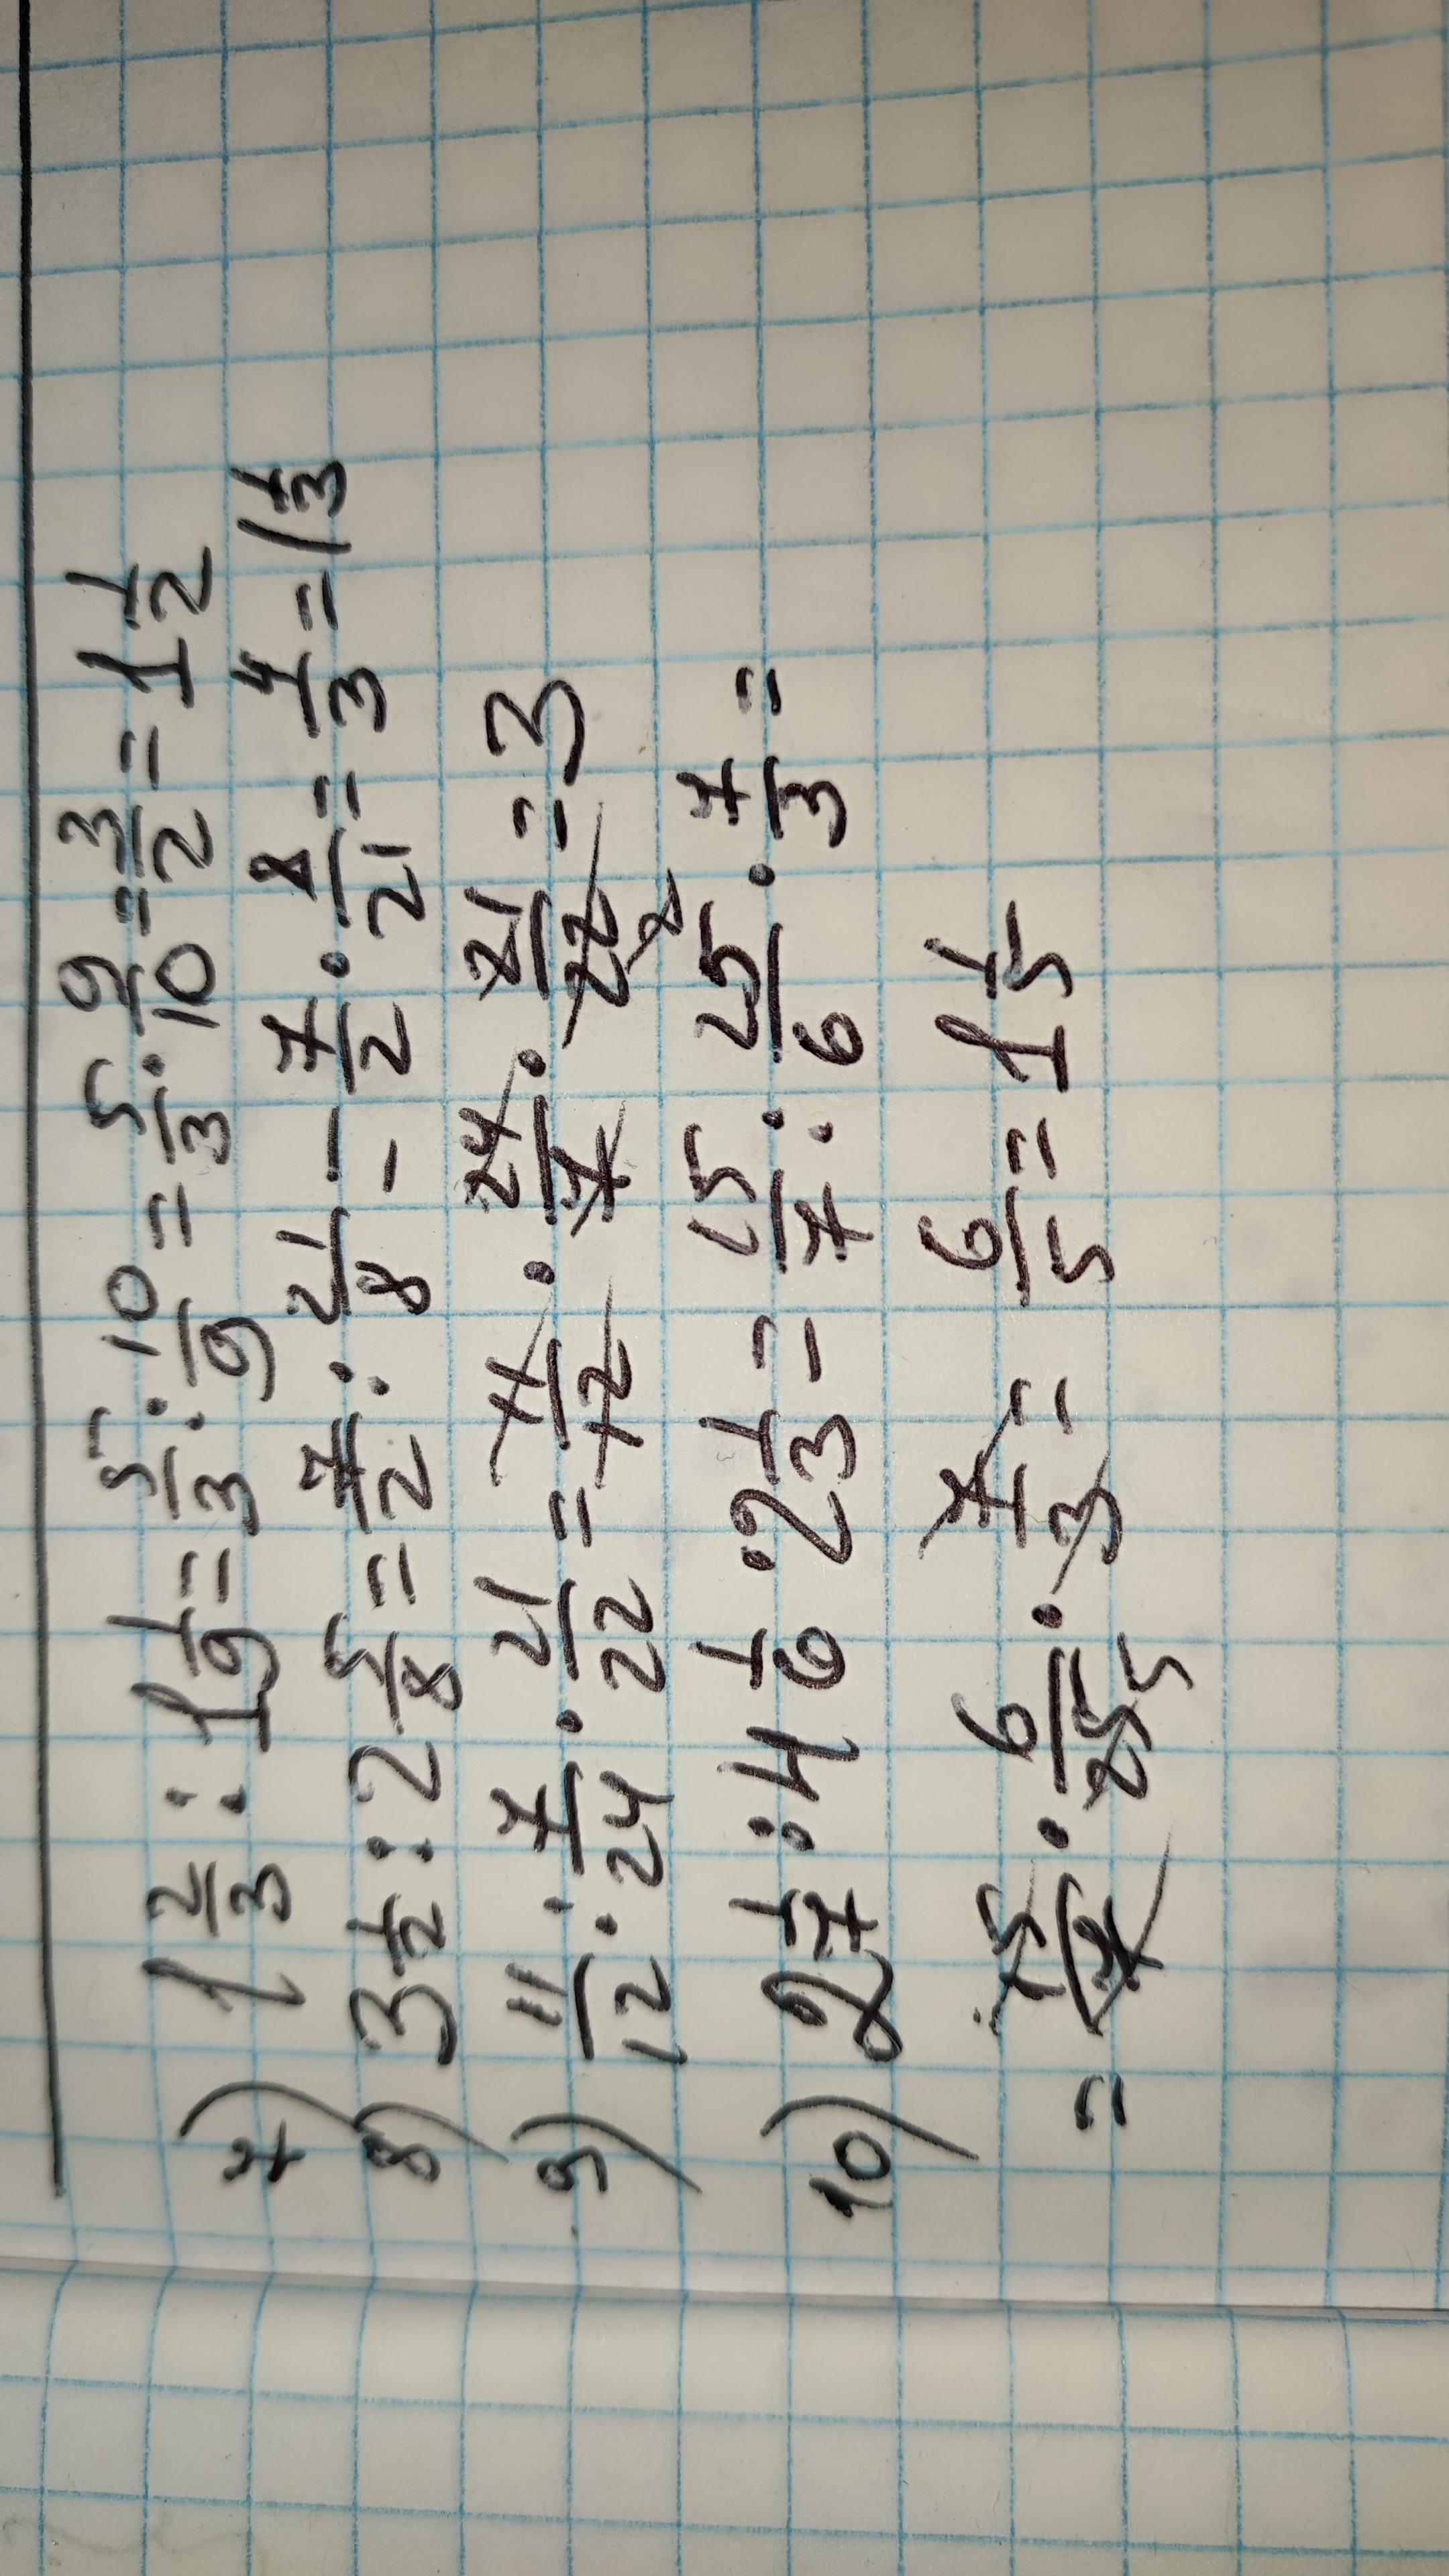 7) 1 2/3 : 1 1/9 = 5/3 : 10/9 = 5/3 · 9/10 = 3/2 = 1 1/2
8) 3 1/2 : 2 5/8 = 7/2 : 21/8 = 7/2 · 8/21 = 4/3 = 1 1/3
9) 11/12 : 7/24 · 21/22 = 11/12 · 24/7 · 21/22 = 3
2
10) 2 1/7 : 4 1/6 · 2 1/3 = 15/7 : 25/6 · 7/3 =
= 15/7 · 6/25 · 7/3 = 6/5 = 1 1/5
5